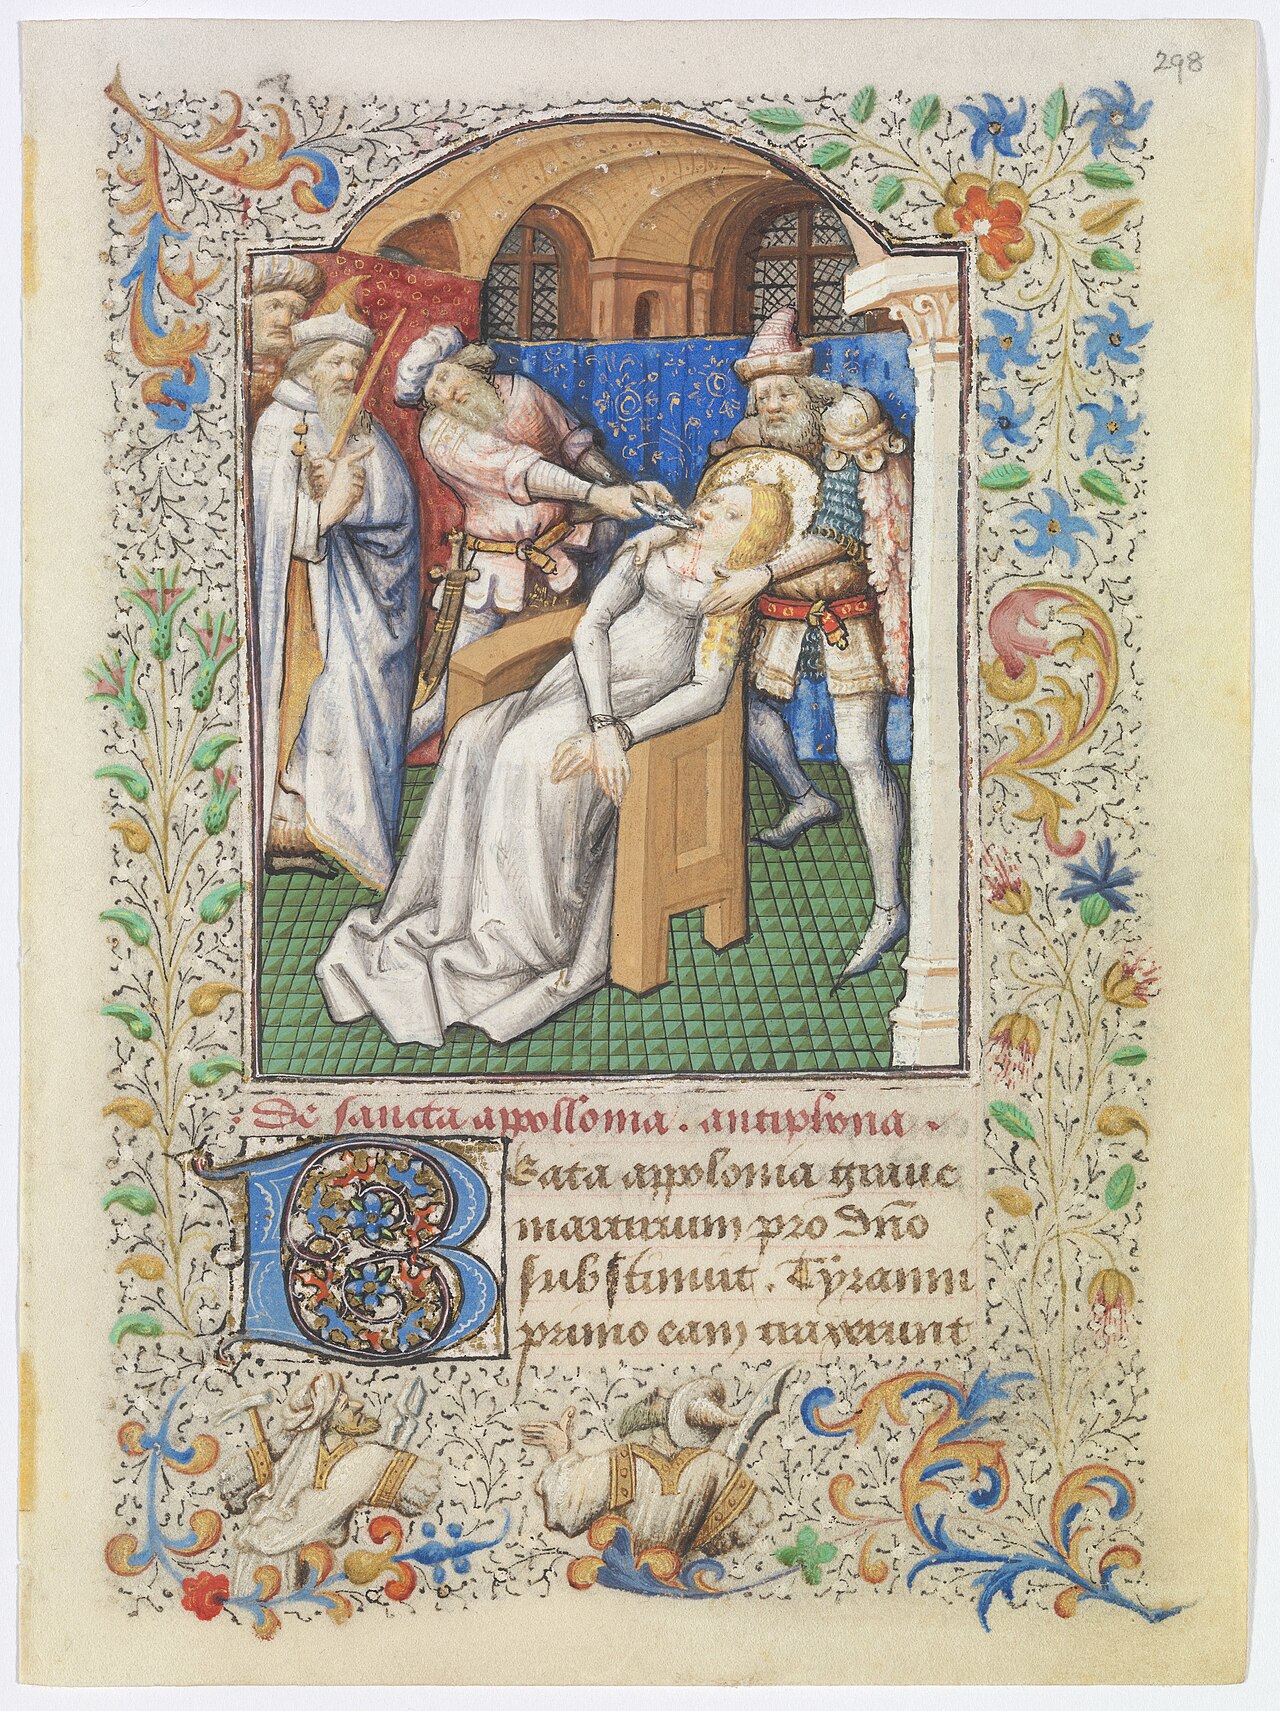 298
De sancta appollonia. antiphona.
Beata appolonia graue
martirium pro dño
substinuit. Tyranni
primo eam traxerunt